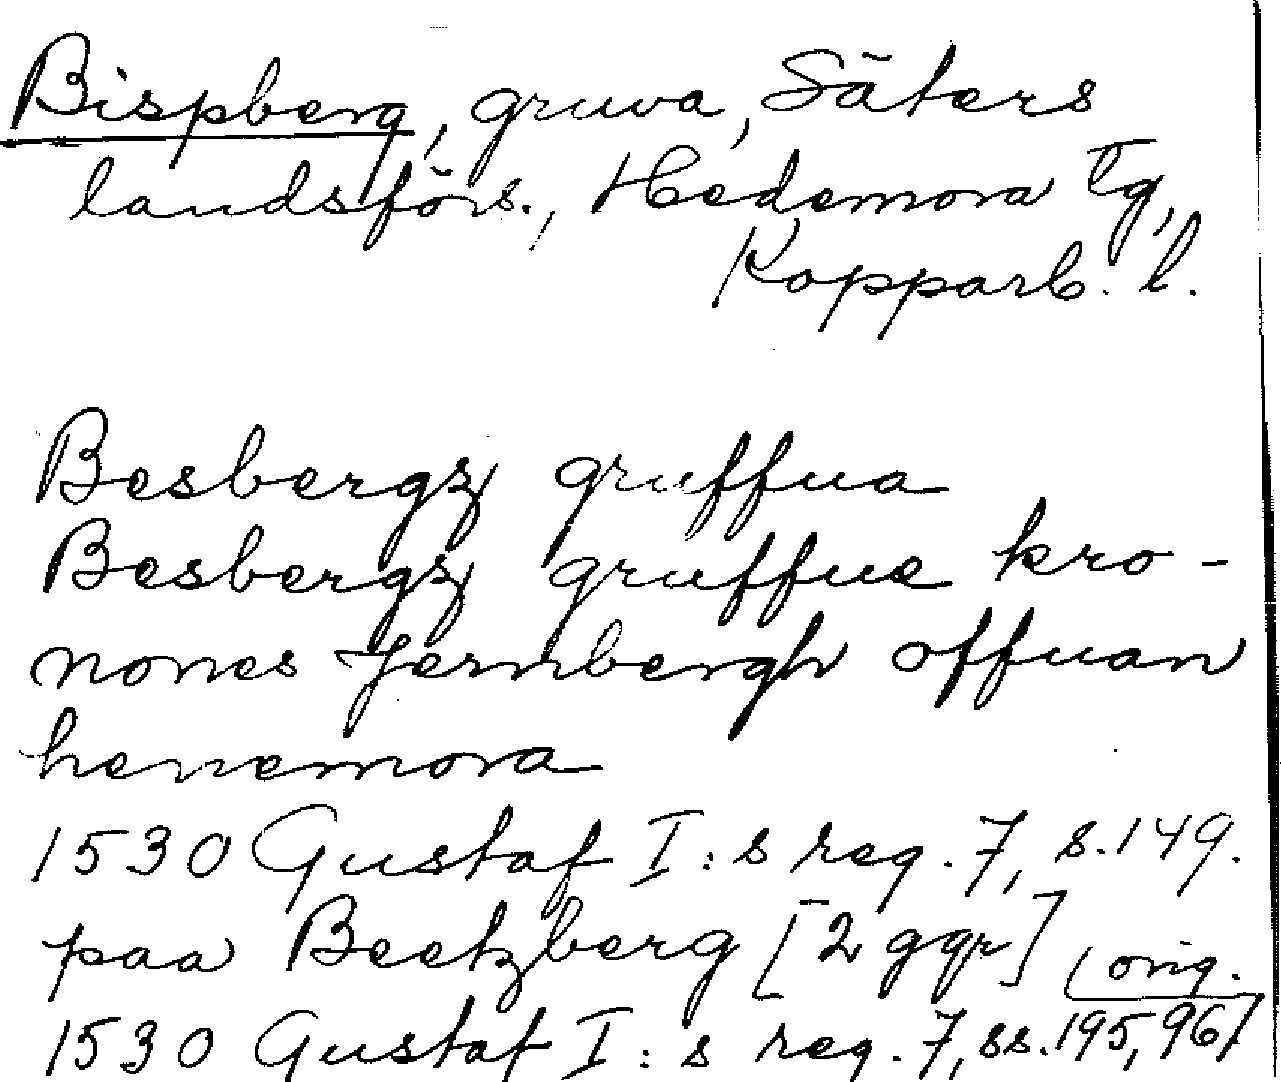 Bispberg, gruva, Säters
landsförs., Hedemora tg,
Kopparb. l.
Besbergz gruffua
Besbergz gruffue kro-
nones Jernbergh offuan
henemora
1530 Gustaf I:s reg. 7, s. 149.
paa Beetzberg [2 ggr] (orig.
1530 Gustaf I:s reg. 7, ss. 195, 96)